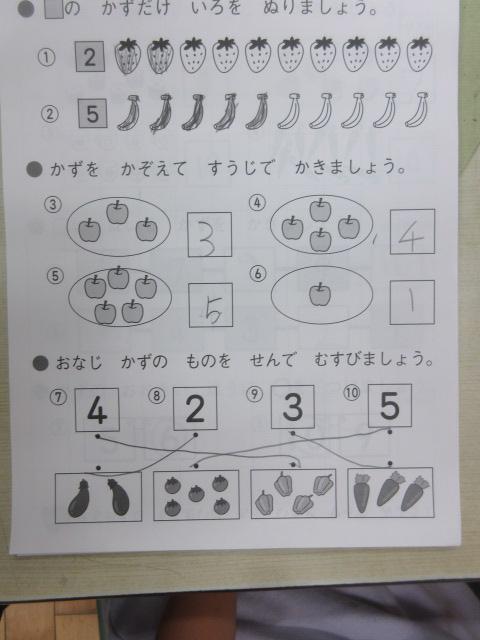 ● の かずだけ いろを ぬりましょう。
① 2
② 5
● かずを かぞえて すうじで かきましょう。
③ 3 ④ 4
⑤ 5 ⑥ 1
● おなじ かずの ものを せんで むすびましょう。
⑦ 4 ⑧ 2 ⑨ 3 ⑩ 5